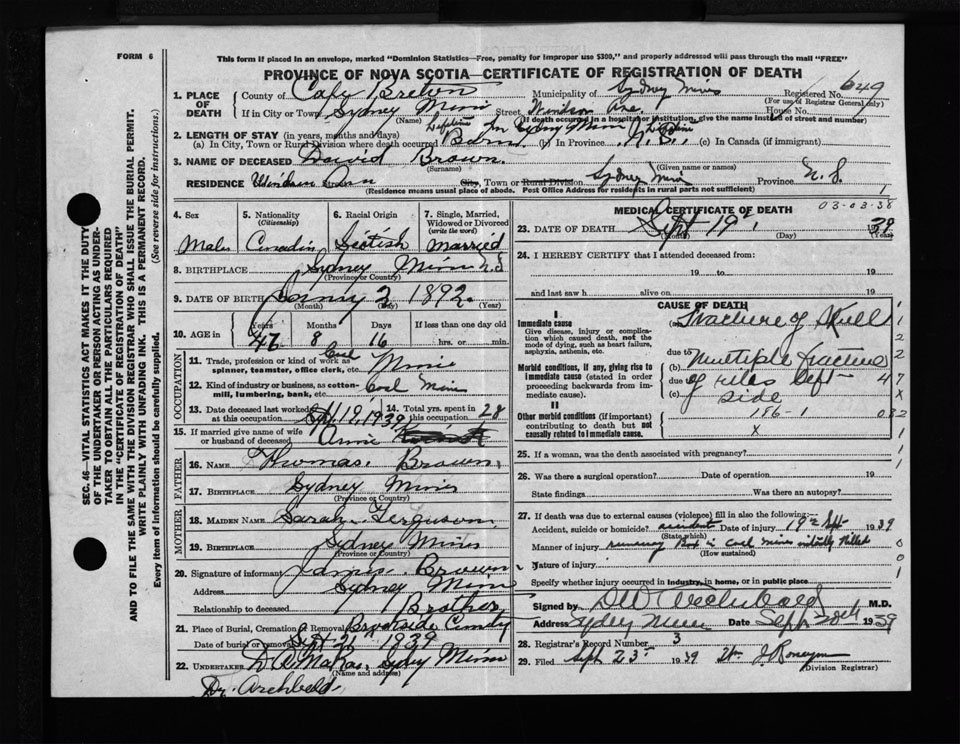 FORM 6
This form if placed in an envelope, marked "Dominion Statistics—Free, penalty for improper use $300," and properly addressed will pass through the mail "FREE"
PROVINCE OF NOVA SCOTIA—CERTIFICATE OF REGISTRATION OF DEATH
649
1. PLACE OF DEATH
County of Cape Breton Municipality of Sydney Mines Registered No.
(For use of Registrar General only)
If in City or Town Sydney Mines Street Ave House No.
(Name) (If death occurred in a hospital or institution, give the name instead of street and number)
2. LENGTH OF STAY (in years, months and days) Lifetime In Sydney Mines Lifetime
(a) In City, Town or Rural Division where death occurred Born (b) In Province N.S. (c) In Canada (if immigrant)
3. NAME OF DECEASED David Brown.
(Surname) (Given name or names)
RESIDENCE City, Town or Rural Division Sydney Mines Province N.S.
(Residence means usual place of abode. Post Office Address for residents in rural parts not sufficient)
1
SEC. 46—VITAL STATISTICS ACT MAKES IT THE DUTY
OF THE UNDERTAKER OR PERSON ACTING AS UNDER-
TAKER TO OBTAIN ALL THE PARTICULARS REQUIRED
IN THE "CERTIFICATE OF REGISTRATION OF DEATH"
AND TO FILE THE SAME WITH THE DIVISION REGISTRAR WHO SHALL ISSUE THE BURIAL PERMIT.
WRITE PLAINLY WITH UNFADING INK. THIS IS A PERMANENT RECORD.
Every item of Information should be carefully supplied. (See reverse side for instructions.)
4. Sex 5. Nationality 6. Racial Origin 7. Single, Married,
(Citizenship) Widowed or Divorced
(write the word)
Male Scotish Married
8. BIRTHPLACE Sydney Mines N.S
(Province or Country)
9. DATE OF BIRTH 2 1892
(Month) (Day) (Year)
10. AGE in Years Months Days If less than one day old
47 8 16 hrs. or min.
OCCUPATION
11. Trade, profession or kind of work as Coal
spinner, teamster, office clerk, etc. Mine
12. Kind of industry or business, as cotton-
mill, lumbering, bank, etc. Coal Mine
13. Date deceased last worked at this occupation 1939 14. Total yrs. spent in this occupation 28
15. If married give name of wife
or husband of deceased Annie
FATHER
16. NAME Thomas Brown
17. BIRTHPLACE Sydney Mines
(Province or Country)
MOTHER
18. MAIDEN NAME Sarah Ferguson
19. BIRTHPLACE Sydney Mines
(Province or Country)
20. Signature of informant Brown
Address Sydney Mines
Relationship to deceased Brother
21. Place of Burial, Cremation or Removal Brookside
Date of burial or removal Sept 21 1939
22. UNDERTAKER Sydney Mines
(Name and address)
Dr. Archbald
MEDICAL CERTIFICATE OF DEATH 03-03-38
23. DATE OF DEATH Sept 19 1939
(Month) (Day) (Year)
24. I HEREBY CERTIFY that I attended deceased from:
19 to 19
and last saw h alive on 19
CAUSE OF DEATH
I
Immediate cause
Give disease, injury or complication which caused death, not the mode of dying, such as heart failure, asphyxia, asthenia, etc.
(a) Fracture of Skull
due to
Morbid conditions, if any, giving rise to immediate cause (stated in order proceeding backwards from immediate cause).
(b) Multiple fracture
due to of ribs left
(c) side
II
Other morbid conditions (if important) contributing to death but not causally related to immediate cause.
186-1
x
25. If a woman, was the death associated with pregnancy?
26. Was there a surgical operation? Date of operation 19
State findings Was there an autopsy?
27. If death was due to external causes (violence) fill in also the following:—
Accident, suicide or homicide? accident Date of injury 19 Sept 1939
(State which)
Manner of injury runaway Box in Coal Mines instantly killed
(How sustained)
Nature of injury
Specify whether injury occurred in industry, in home, or in public place
Signed by M.D.
Address Sydney Mines Date Sept 20th 1939
28. Registrar's Record Number 3
29. Filed Sept 23 1939
(Division Registrar)